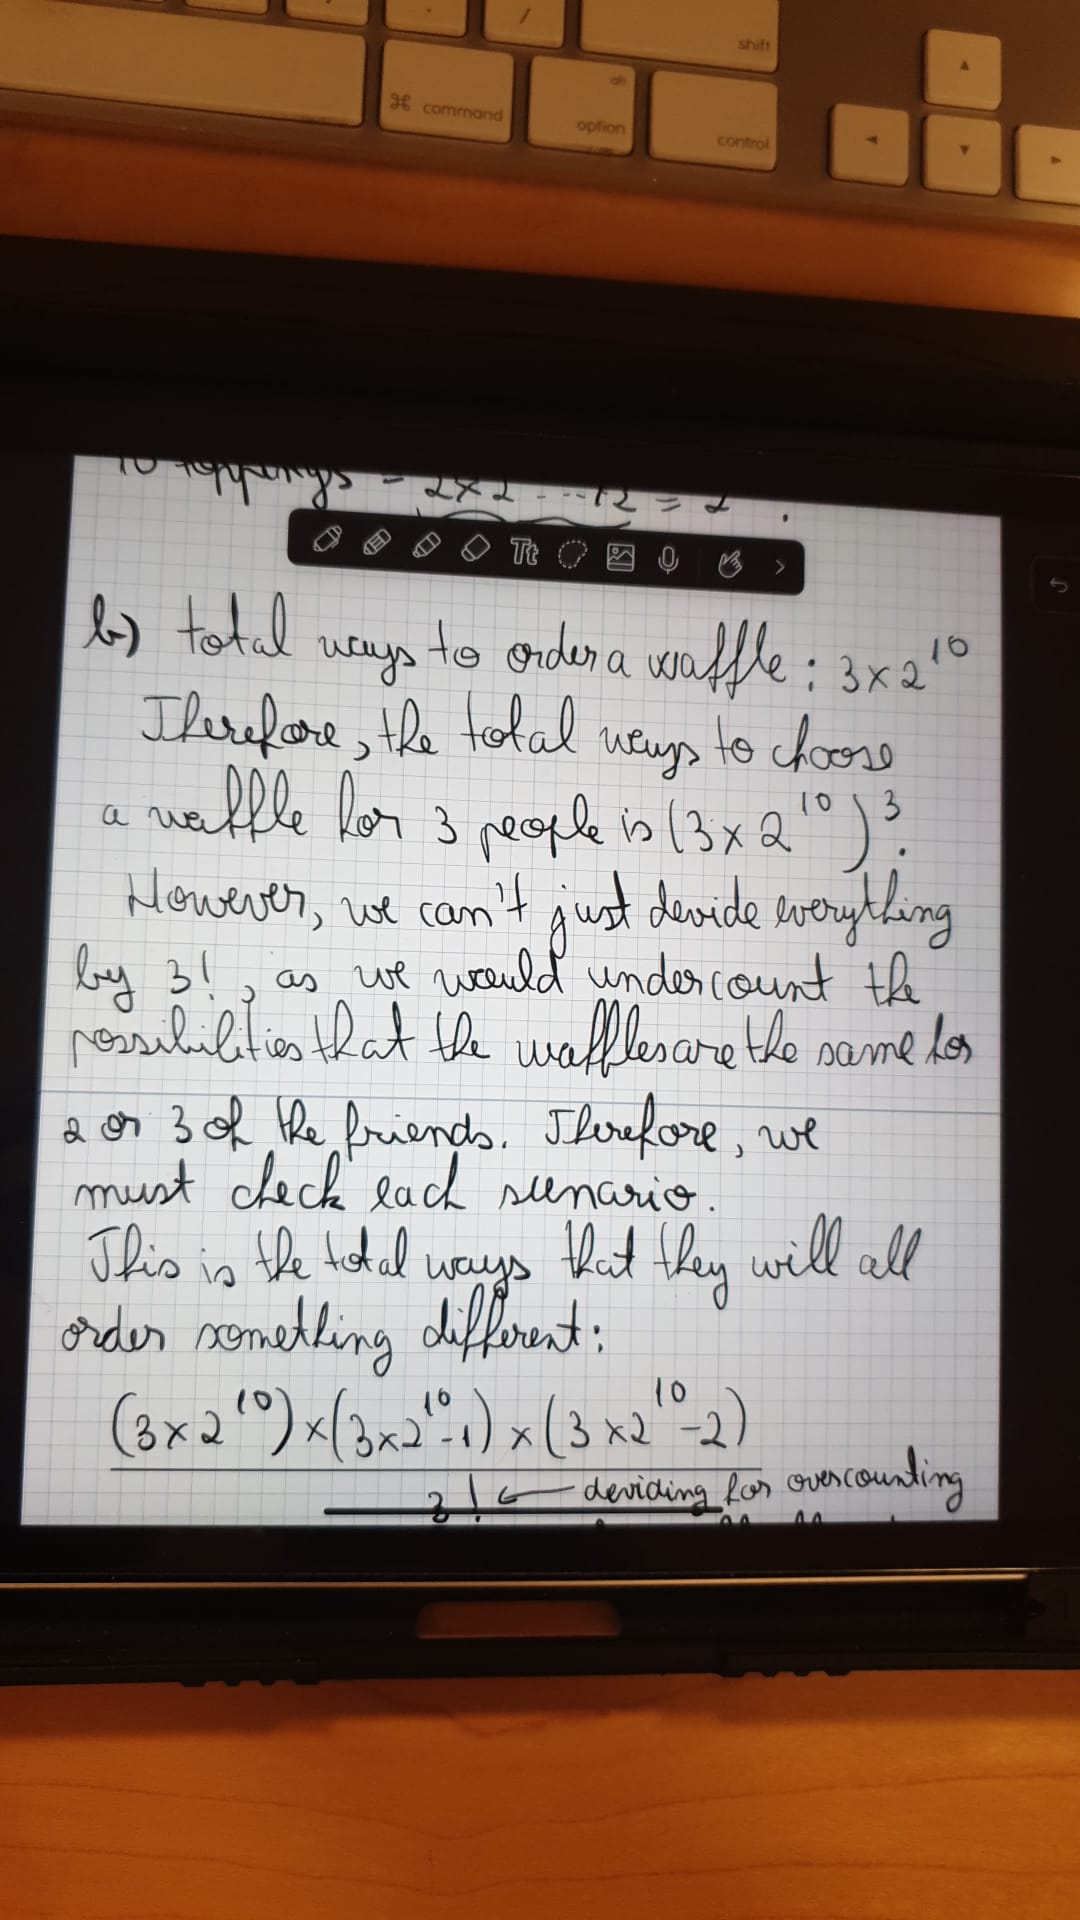 shift
/
⌘ command
alt
option
control
10 toppings = 2x2 ... x2 = 2 .
Tt
b) total ways to order a waffle : 3 x 2^10
Therefore, the total ways to choose
a waffle for 3 people is (3 x 2^10)^3.
However, we can't just devide everything
by 3!, as we would undercount the
possibilities that the waffles are the same for
2 or 3 of the friends. Therefore, we
must check each scenario.
This is the total ways that they will all
order something different:
(3 x 2^10) x (3 x 2^10 - 1) x (3 x 2^10 - 2)
3! ← deviding for overcounting